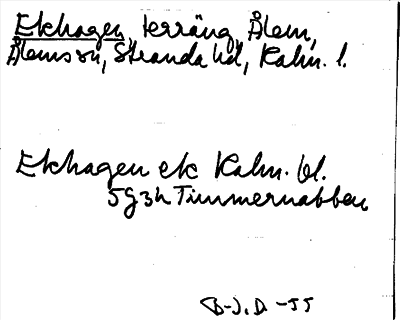 Ekhagen, terräng, Ålem,
Ålems sn, Stranda hd, Kalm. l.
Ekhagen ek Kalm. bl.
5g3h Timmernabben
B-J.D. -55